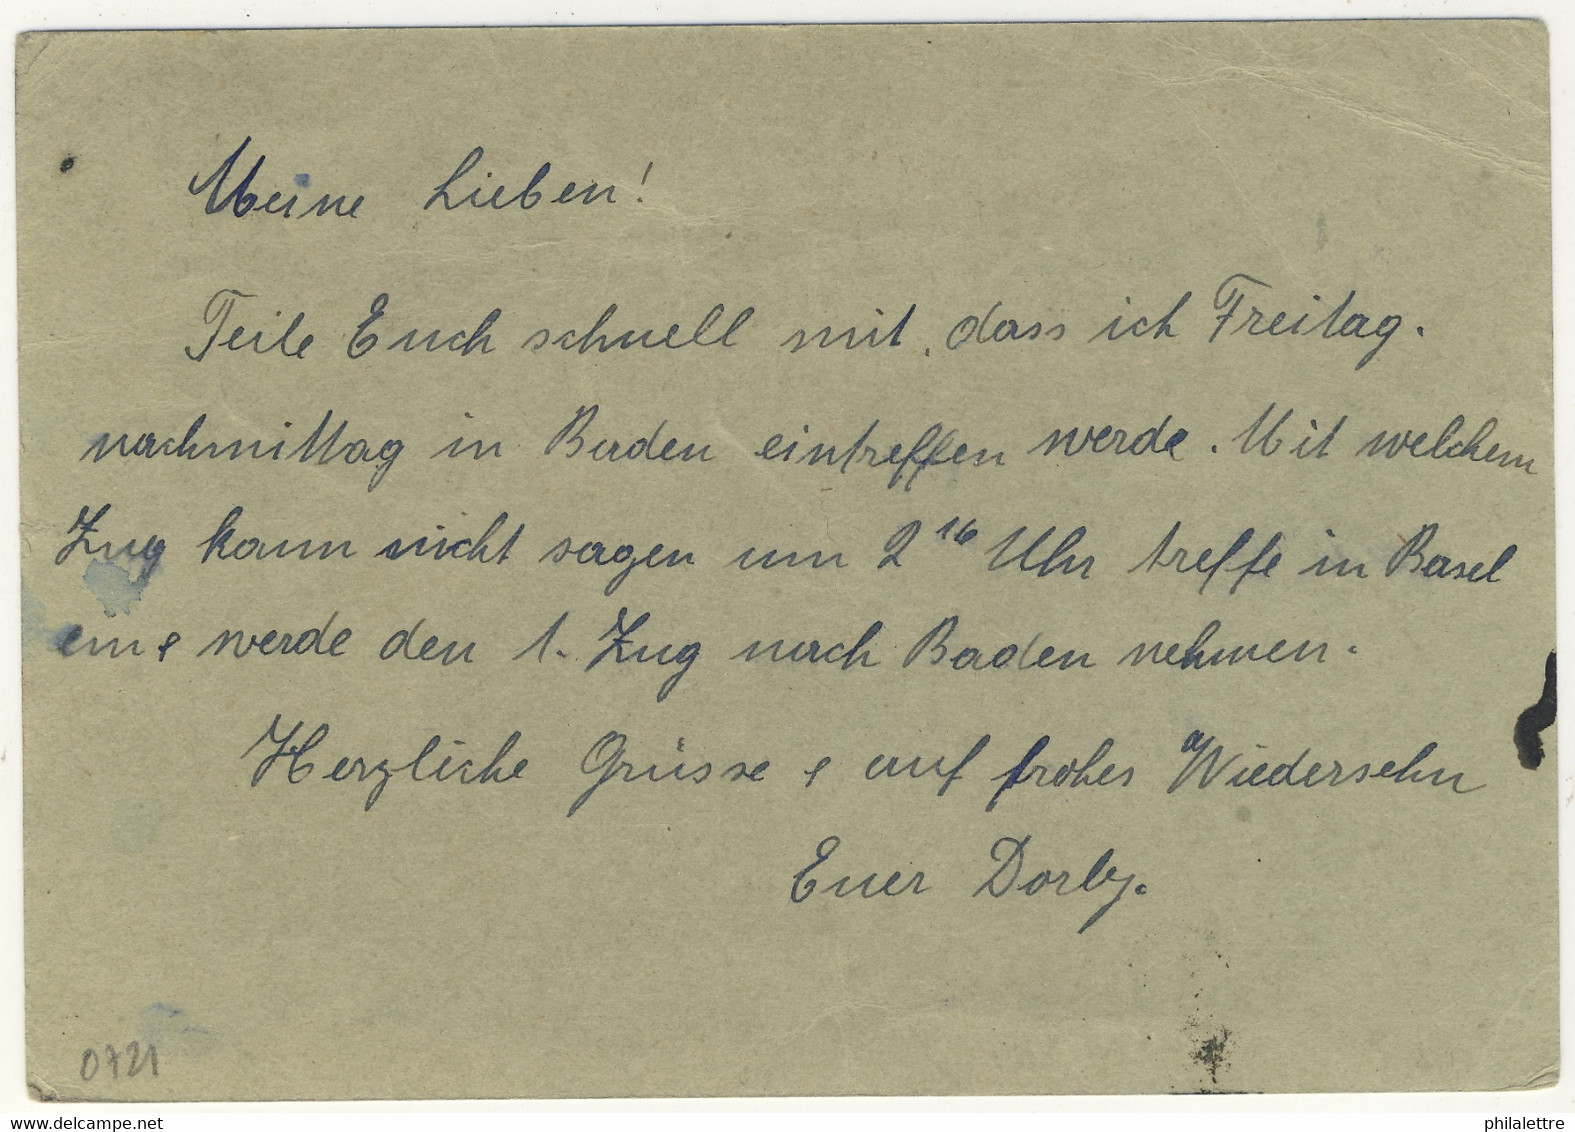 Meine Lieben!
Teile Euch schnell mit, dass ich Freitag.
nachmittag in Baden eintreffen werde. Mit welchem
Zug kann nicht sagen um 2¹⁶ Uhr treffe in Basel
ein & werde den 1. Zug nach Baden nehmen.
Herzliche Grüsse & auf frohes Wiedersehn
Euer Dorly.
0721
www.delcampe.net
philalettre